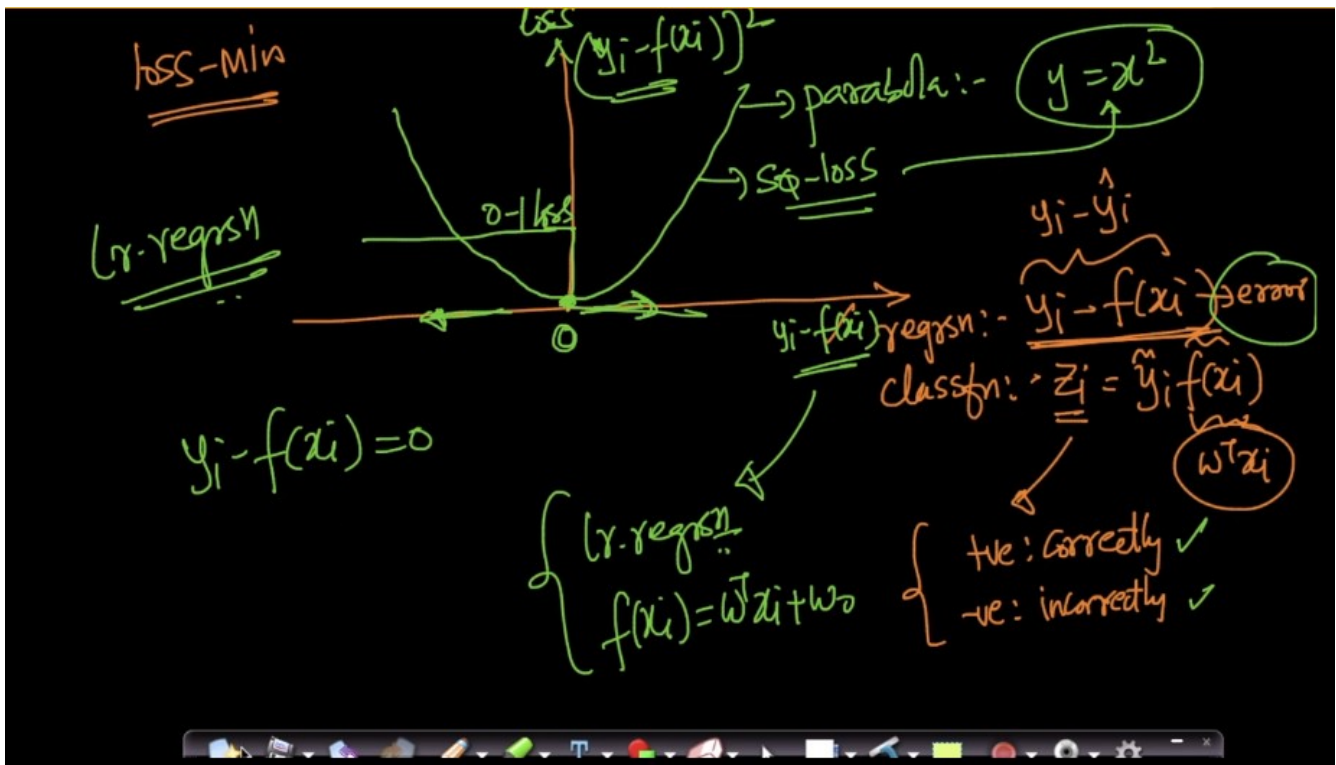 loss-min
loss
(yi-f(xi))²
→ parabola:- y = x²
→ sq-loss
0-1 loss
lr-regrsn
yi - ŷi
yi-f(xi)
regrsn:- yi - f(xi) → error
classfn:- zi = yi f(xi)
wᵀxi
0
yi-f(xi)=0
lr-regrsn
f(xi) = wᵀxi + w₀
+ve: correctly ✓
-ve: incorrectly ✓
T